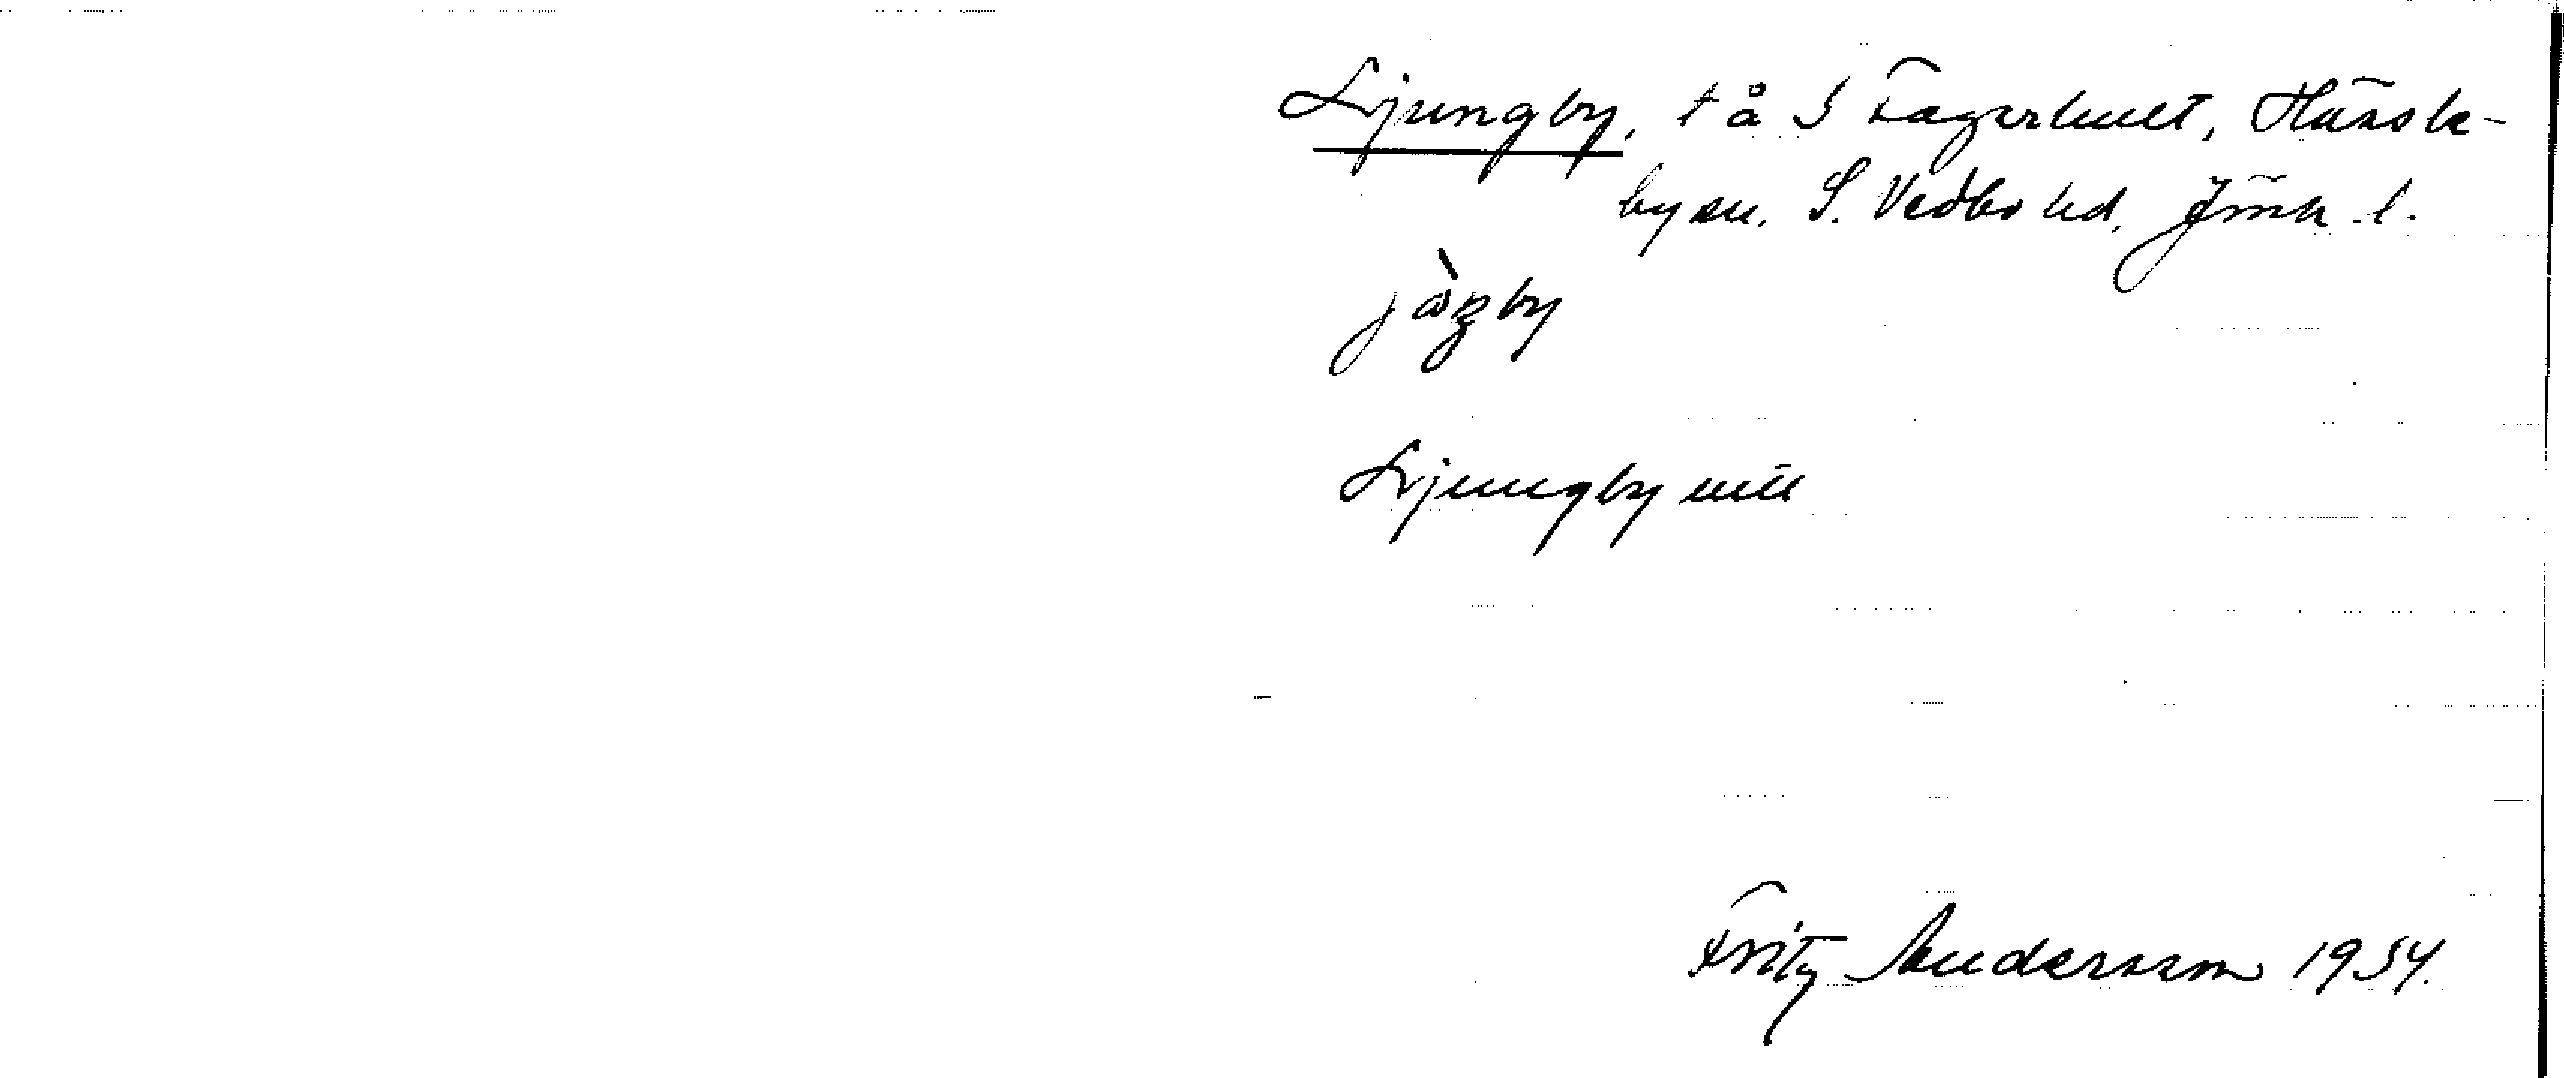 Ljungby, t å S Fagerhult, Hässle-
by sn. S. Vedbo hd, Jönk. l.
jȯ̀ŋby
Ljungby
Fritz Andersson 1954.